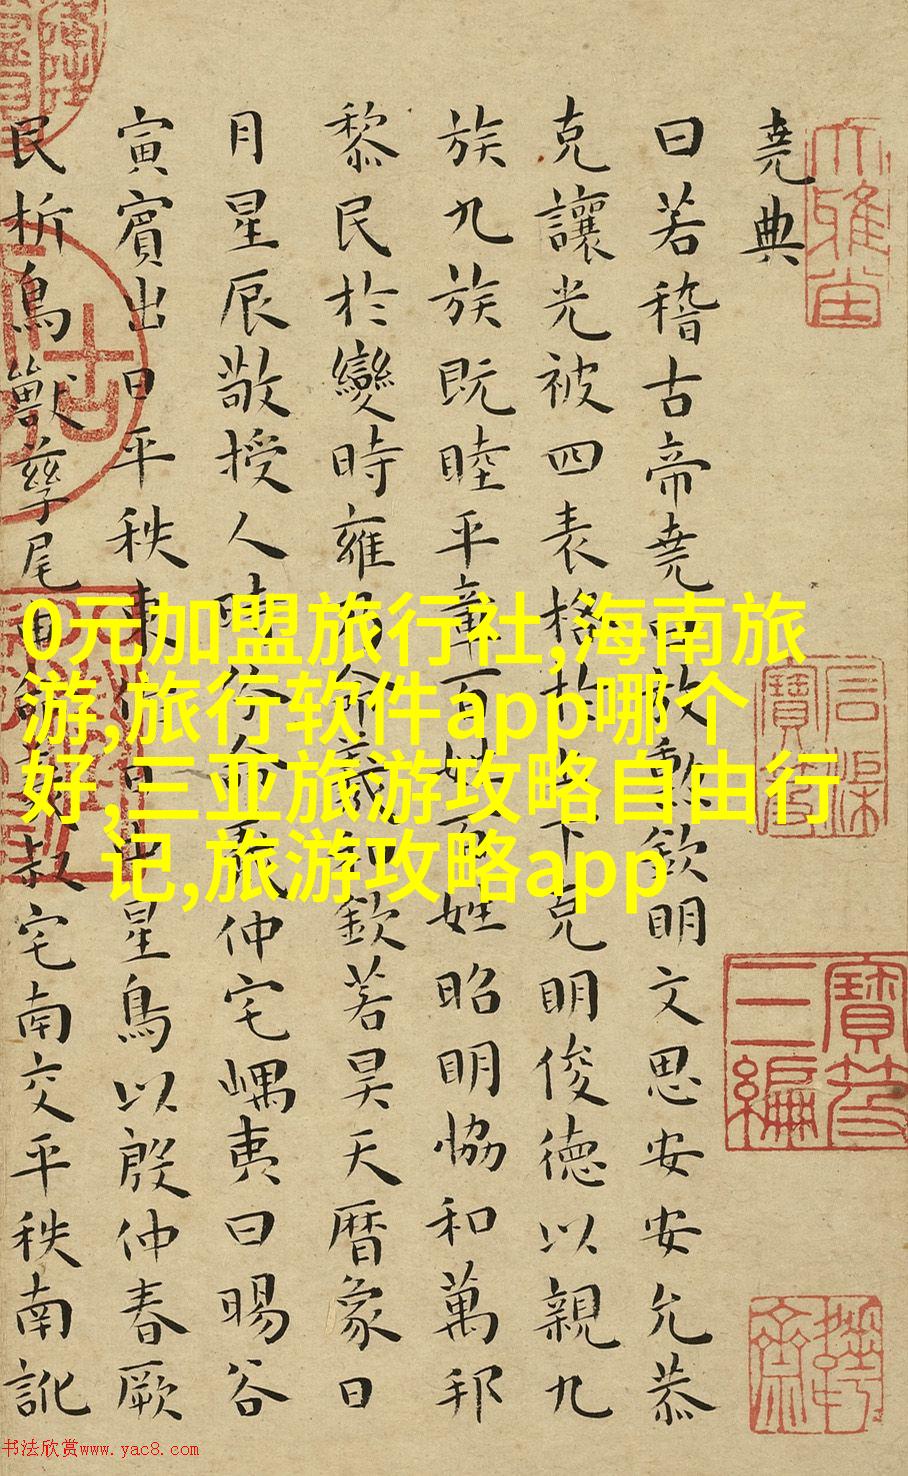 堯典
曰若稽古帝堯曰放勳欽明文思安安允恭
克讓光被四表格於上下克明俊德以親九
族九族既睦平章百姓百姓昭明恊和萬邦
黎民於變時雍乃命羲和欽若昊天曆象日
月星辰敬授人時分命羲仲宅嵎夷曰暘谷
寅賓出日平秩東作日中星鳥以殷仲春厥
民析鳥獸孳尾申命羲叔宅南交平秩南訛
0元加盟旅行社,海南旅
游,旅行软件app哪个
好,三亚旅游攻略自由行
记,旅游攻略app
寶笈三編
书法欣赏www.yac8.com